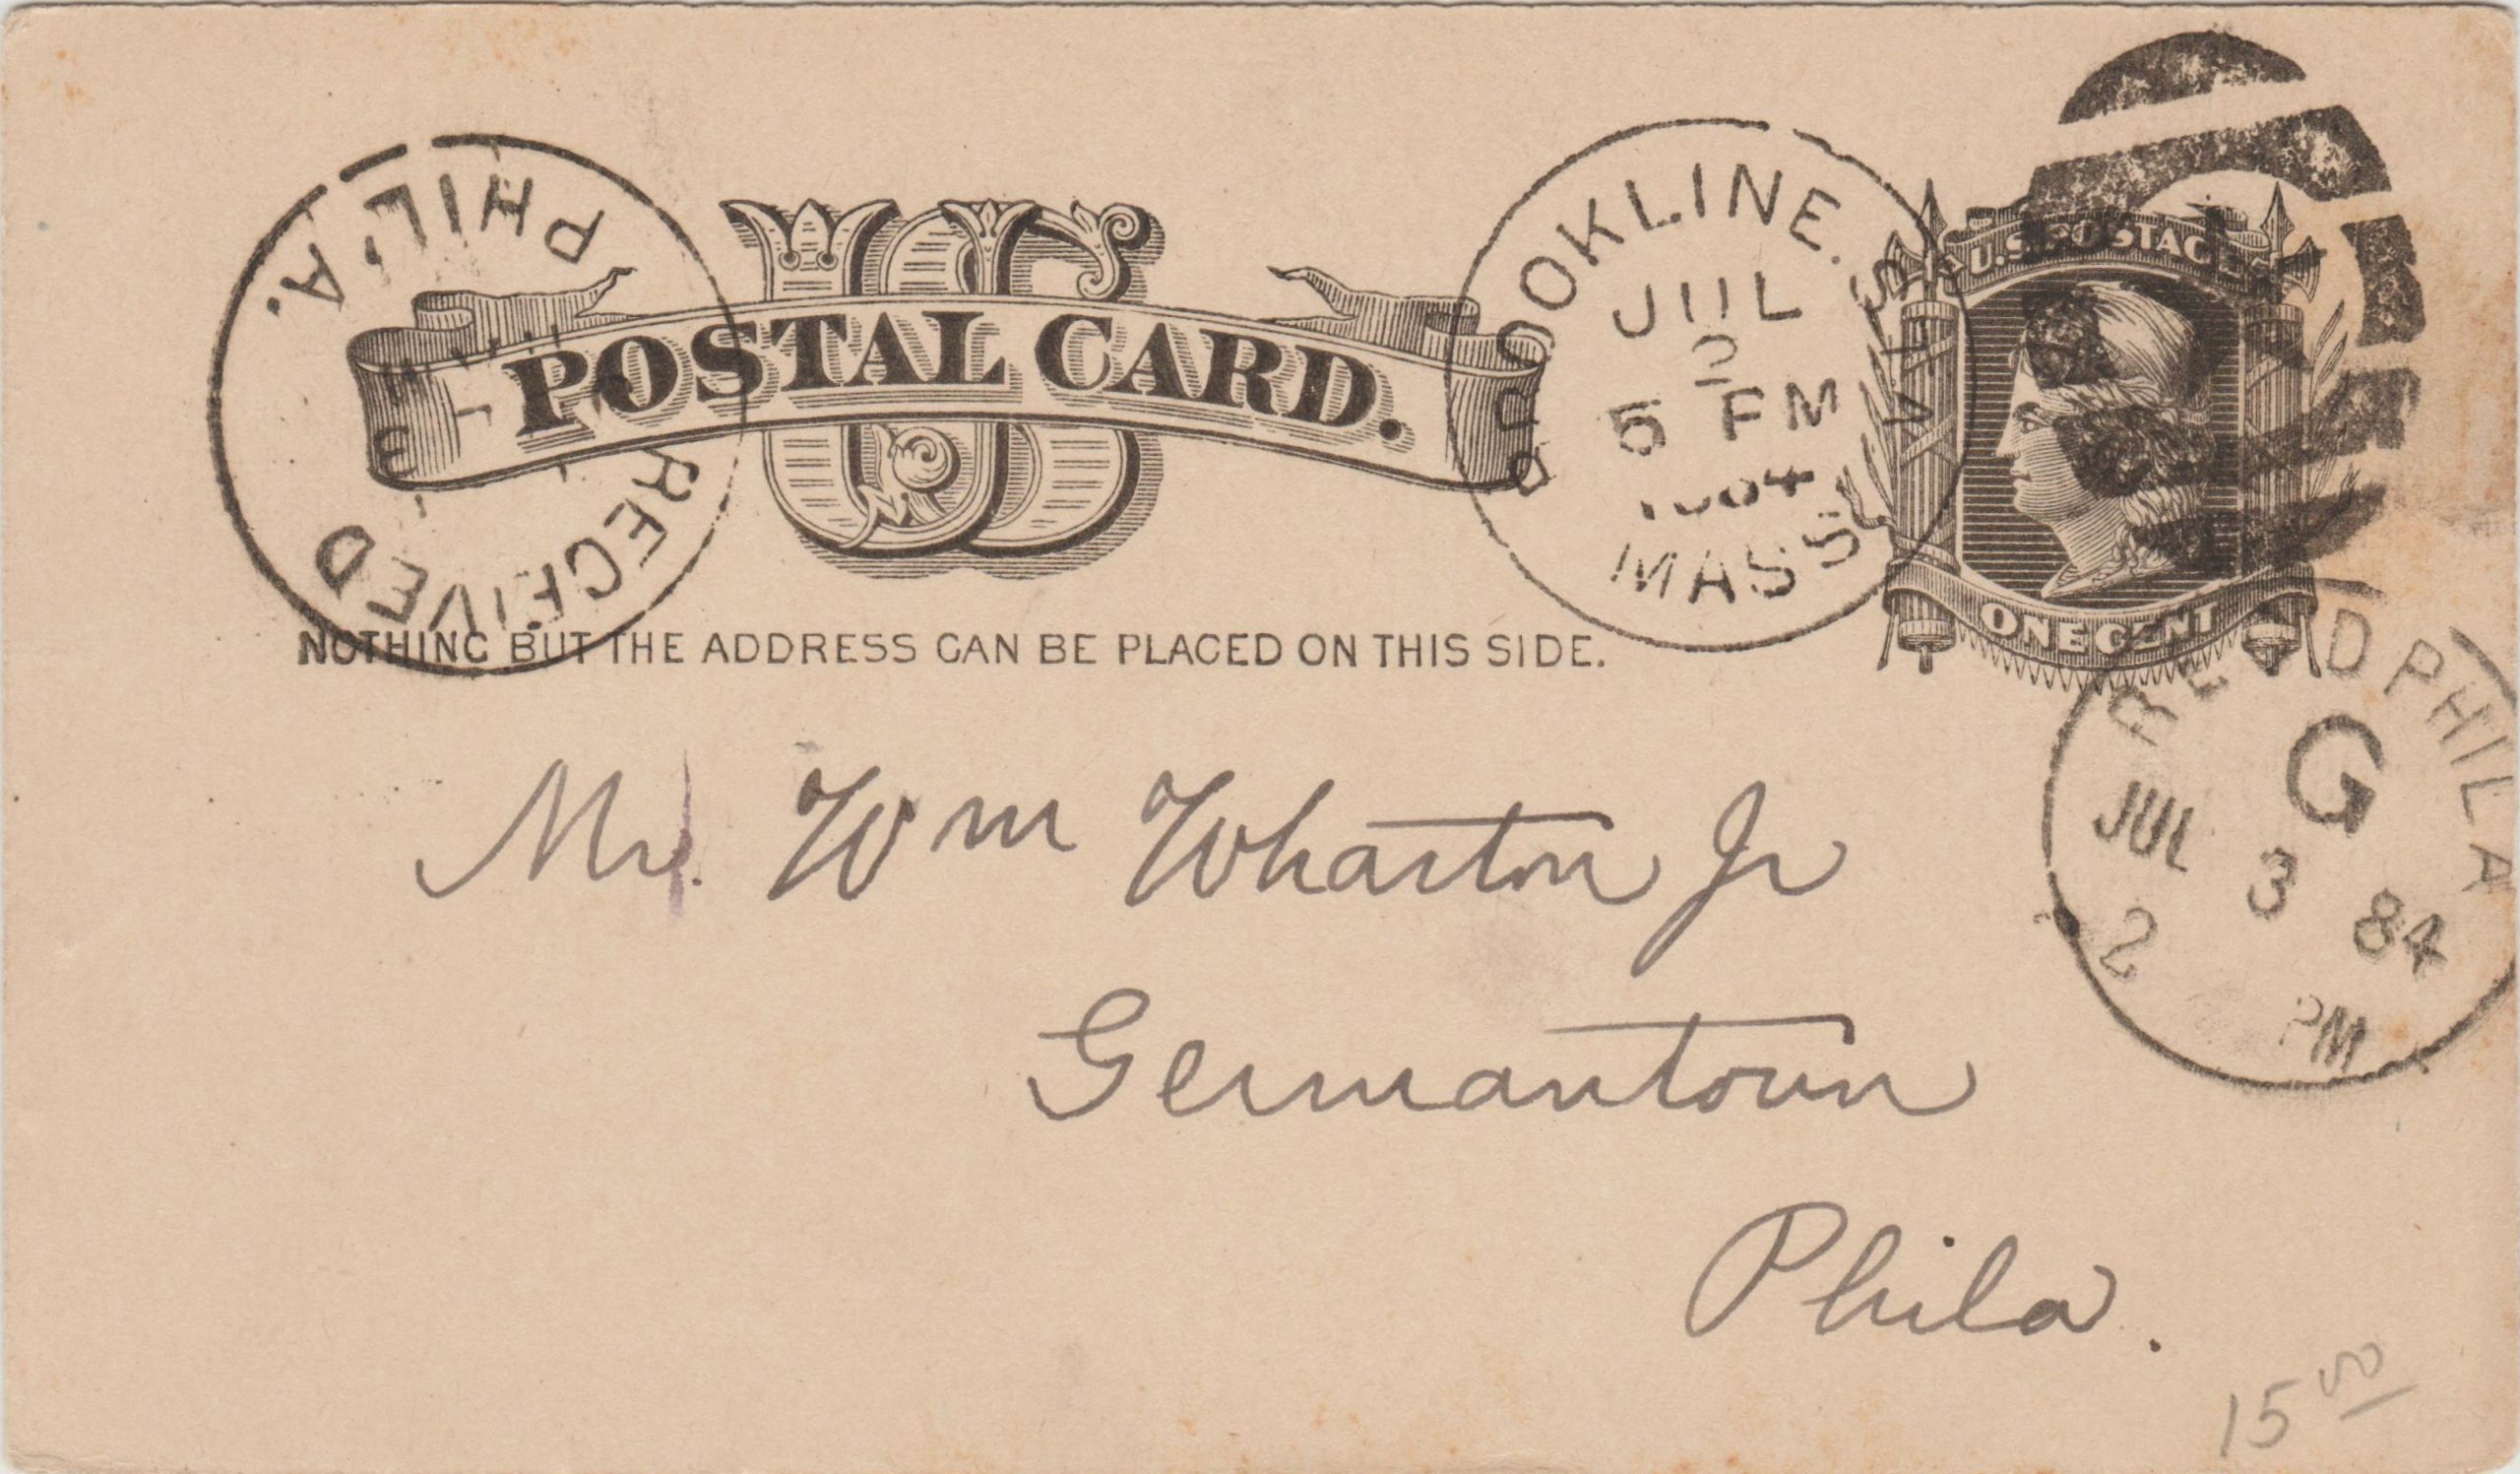 PHIL'A.
RECEIVED
3
US
POSTAL CARD.
NOTHING BUT THE ADDRESS CAN BE PLACED ON THIS SIDE.
BROOKLINE. STA.
JUL
2
5 PM
1884
MASS
U.S. POSTAGE
ONE CENT
REC'D PHILA
G
JUL 3 84
2 PM
Mr. Wm Wharton Jr
Germantown
Phila.
15 00